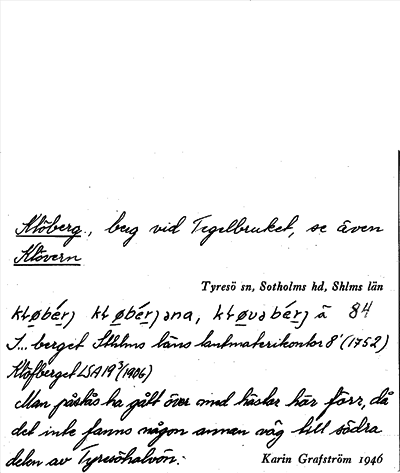 Klöberg., berg vid Tegelbruket, se även
Klövern
Tyresö sn, Sotholms hd, Shlms län
84
berget Sthlms läns lantmäterikontor 8' (1752)
Klöfberget LSA 19³ (1906)
Man påstås ha gått över med hästar här förr, då
det inte fanns någon annan väg till södra
delen av Tyresöhalvön.
Karin Grafström 1946